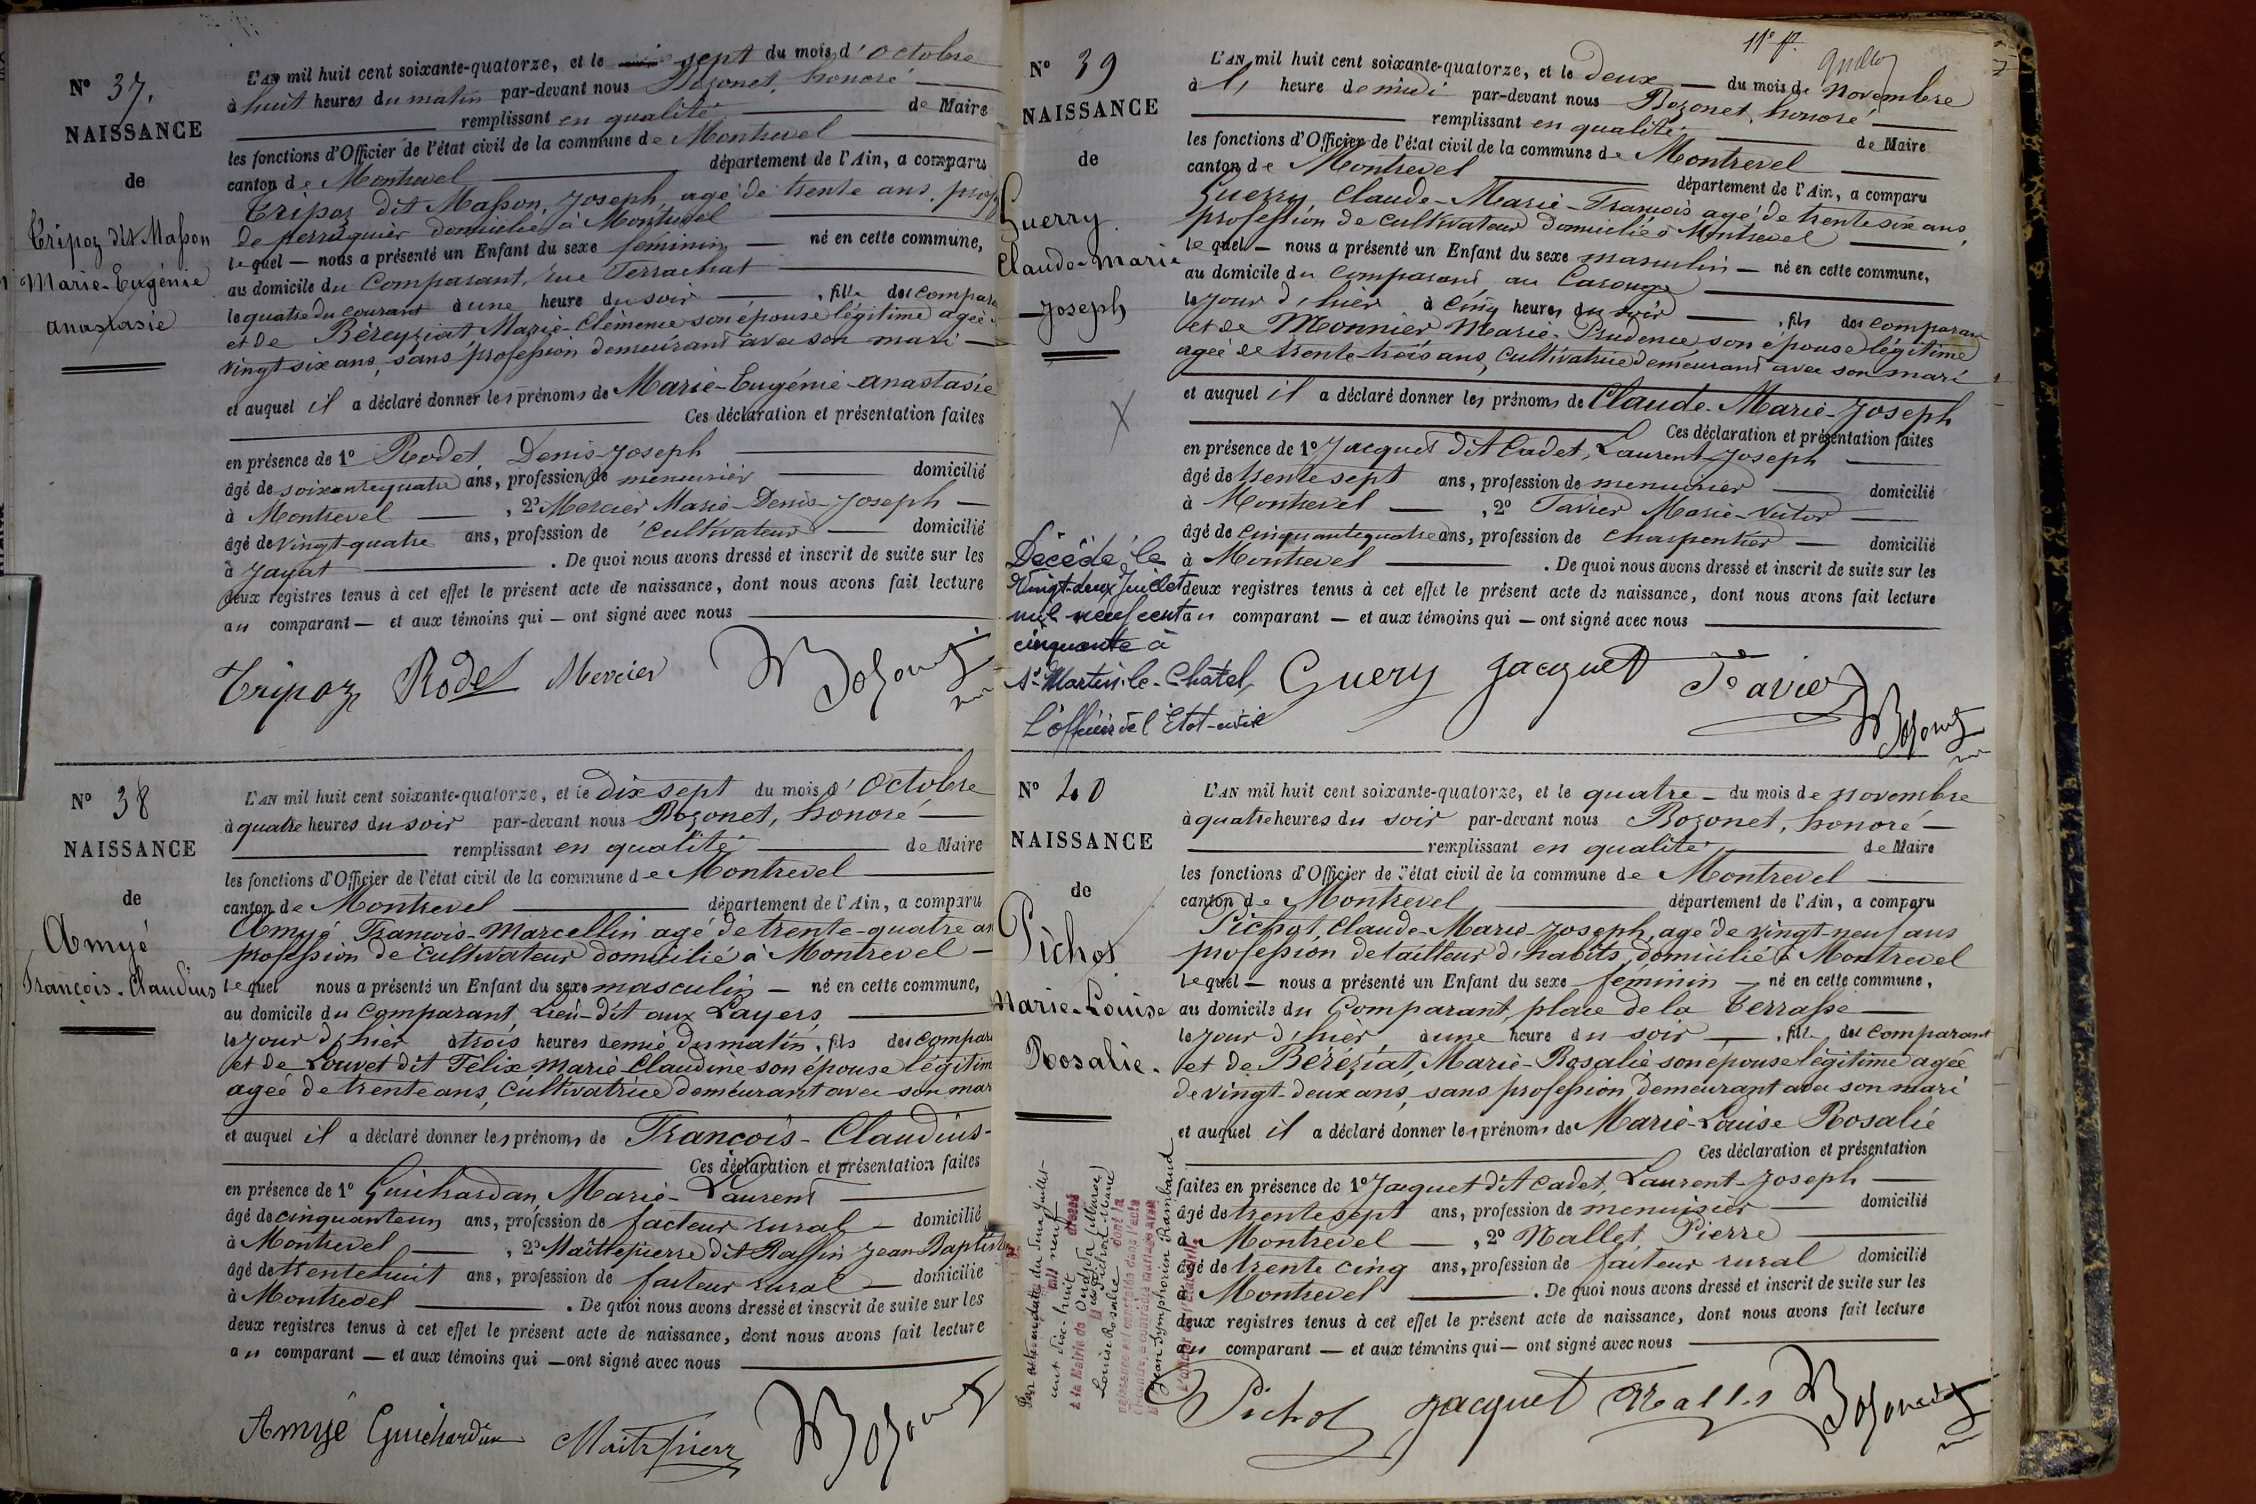 Nº 37.
NAISSANCE
de
Tripoz dit Masson
Marie-Eugénie
anastasie
L'AN mil huit cent soixante-quatorze, et le sept du mois d'Octobre
à huit heures du matin par-devant nous Bozonet, honoré
remplissant en qualité de Maire
les fonctions d'Officier de l'état civil de la commune de Montrevel
canton de Montrevel département de l'Ain, a comparu
Tripoz dit Masson, Joseph, agé de trente ans, prof
de perruquier domicilié à Montrevel
lequel — nous a présenté un Enfant du sexe féminin — né en cette commune,
au domicile du Comparant, rue Terrachat
le quatre du courant à une heure du soir, fille des compara
et de Béreyziat, Marie-Clémence son épouse légitime agée
vingt six ans, sans profession demeurant avec son mari —
et auquel il a déclaré donner les prénoms de Marie-Eugénie-anastasie
Ces déclaration et présentation faites
en présence de 1º Rodet Denis-Joseph
âgé de soixantequatre ans, profession de menuisier domicilié
à Montrevel —, 2º Mercier Marie-Denis-Joseph —
âgé de vingt-quatre ans, profession de cultivateur — domicilié
à Jayat . De quoi nous avons dressé et inscrit de suite sur les
deux registres tenus à cet effet le présent acte de naissance, dont nous avons fait lecture
au comparant — et aux témoins qui — ont signé avec nous
Tripoz Rodet Mercier Bozonet
Nº 38
NAISSANCE
de
Amyé
François-Claudius
L'AN mil huit cent soixante-quatorze, et le dix sept du mois d'Octobre
à quatre heures du soir par-devant nous Bozonet, honoré —
remplissant en qualité de Maire
les fonctions d'Officier de l'état civil de la commune de Montrevel
canton de Montrevel département de l'Ain, a comparu
Amyé François-Marcellin agé de trente-quatre an
profession de cultivateur domicilié à Montrevel —
lequel nous a présenté un Enfant du sexe masculin — né en cette commune,
au domicile du comparant Lieu-dit aux Layers,
le jour d'hier à trois heures demie du matin, fils des compara
et de Louvet dit Félix Marie-Claudine son épouse légitim
agée de trente ans, cultivatrice demeurant avec son mar
et auquel il a déclaré donner les prénoms de François-Claudius-
Ces déclaration et présentation faites
en présence de 1º Guichardan, Marie-Laurent
âgé de cinquanteun ans, profession de facteur rural — domicilié
à Montrevel —, 2º Maîtrepierre dit Raffin Jean Baptiste
âgé de trentehuit ans, profession de facteur rural — domicilié
à Montrevel . De quoi nous avons dressé et inscrit de suite sur les
deux registres tenus à cet effet le présent acte de naissance, dont nous avons fait lecture
au comparant — et aux témoins qui — ont signé avec nous
Amyé Guichardan Maitrepierre Bozonet
11e f.
Nº 39
NAISSANCE
de
Guerry
Claude-Marie
Joseph
L'AN mil huit cent soixante-quatorze, et le deux — du mois de Novembre
à l' heure de midi par-devant nous Bozonet, honoré
remplissant en qualité de Maire
les fonctions d'Officier de l'état civil de la commune de Montrevel
canton de Montrevel département de l'Ain, a comparu
Guerry, Claude-Marie-François agé de trentesix ans,
profession de cultivateur domicilié à Montrevel
lequel — nous a présenté un Enfant du sexe masculin — né en cette commune,
au domicile du comparant, au Carouge
le jour d'hier à cinq heures du soir, fils des comparan
et de Monnier Marie-Prudence, son épouse légitime
agée de trente-trois ans, cultivatrice demeurant avec son mari
et auquel il a déclaré donner les prénoms de Claude-Marie-Joseph
Ces déclaration et présentation faites
en présence de 1º Jacquet dit Cadet, Laurent-Joseph
âgé de trente sept ans, profession de menuisier domicilié
à Montrevel —, 2º Favier Marie-Victor
âgé de cinquantequatre ans, profession de charpentier — domicilié
à Montrevel . De quoi nous avons dressé et inscrit de suite sur les
deux registres tenus à cet effet le présent acte de naissance, dont nous avons fait lecture
au comparant — et aux témoins qui — ont signé avec nous
Décédé le
Vingt-deux Juillet
mil neuf cent
cinquante à
St Martin-le-Chatel
L'officier de l'Etat-civil
Guery Jacquet Favier Bozonet
Nº 40
NAISSANCE
de
Pichot
Marie-Louise
Rosalie.
L'AN mil huit cent soixante-quatorze, et le quatre — du mois de Novembre
à quatre heures du soir par-devant nous Bozonet, honoré —
remplissant en qualité de Maire
les fonctions d'Officier de l'état civil de la commune de Montrevel
canton de Montrevel département de l'Ain, a comparu
Pichot, Claude-Marie-Joseph, agé de vingt-neuf ans
profession de tailleur d'habits, domicilié à Montrevel
lequel — nous a présenté un Enfant du sexe féminin — né en cette commune,
au domicile du Comparant, place de la Terrasse
le jour d'hier, à une heure du soir —, fille des comparant
et de Béréziat, Marie-Rosalie son épouse légitime agée
de vingt-deux ans, sans profession demeurant avec son mari
et auquel il a déclaré donner les prénoms de Marie-Louise Rosalie
Ces déclaration et présentation
faites en présence de 1º Jacquet dit Cadet, Laurent-Joseph
âgé de trente sept ans, profession de menuisier domicilié
à Montrevel —, 2º Nallet Pierre
âgé de trente cinq ans, profession de facteur rural domicilié
à Montrevel . De quoi nous avons dressé et inscrit de suite sur les
deux registres tenus à cet effet le présent acte de naissance, dont nous avons fait lecture
au comparant — et aux témoins qui — ont signé avec nous
Louise Rosalie
Jean Symphorien Rambaud
Pichot Jacquet Nallet Bozonet